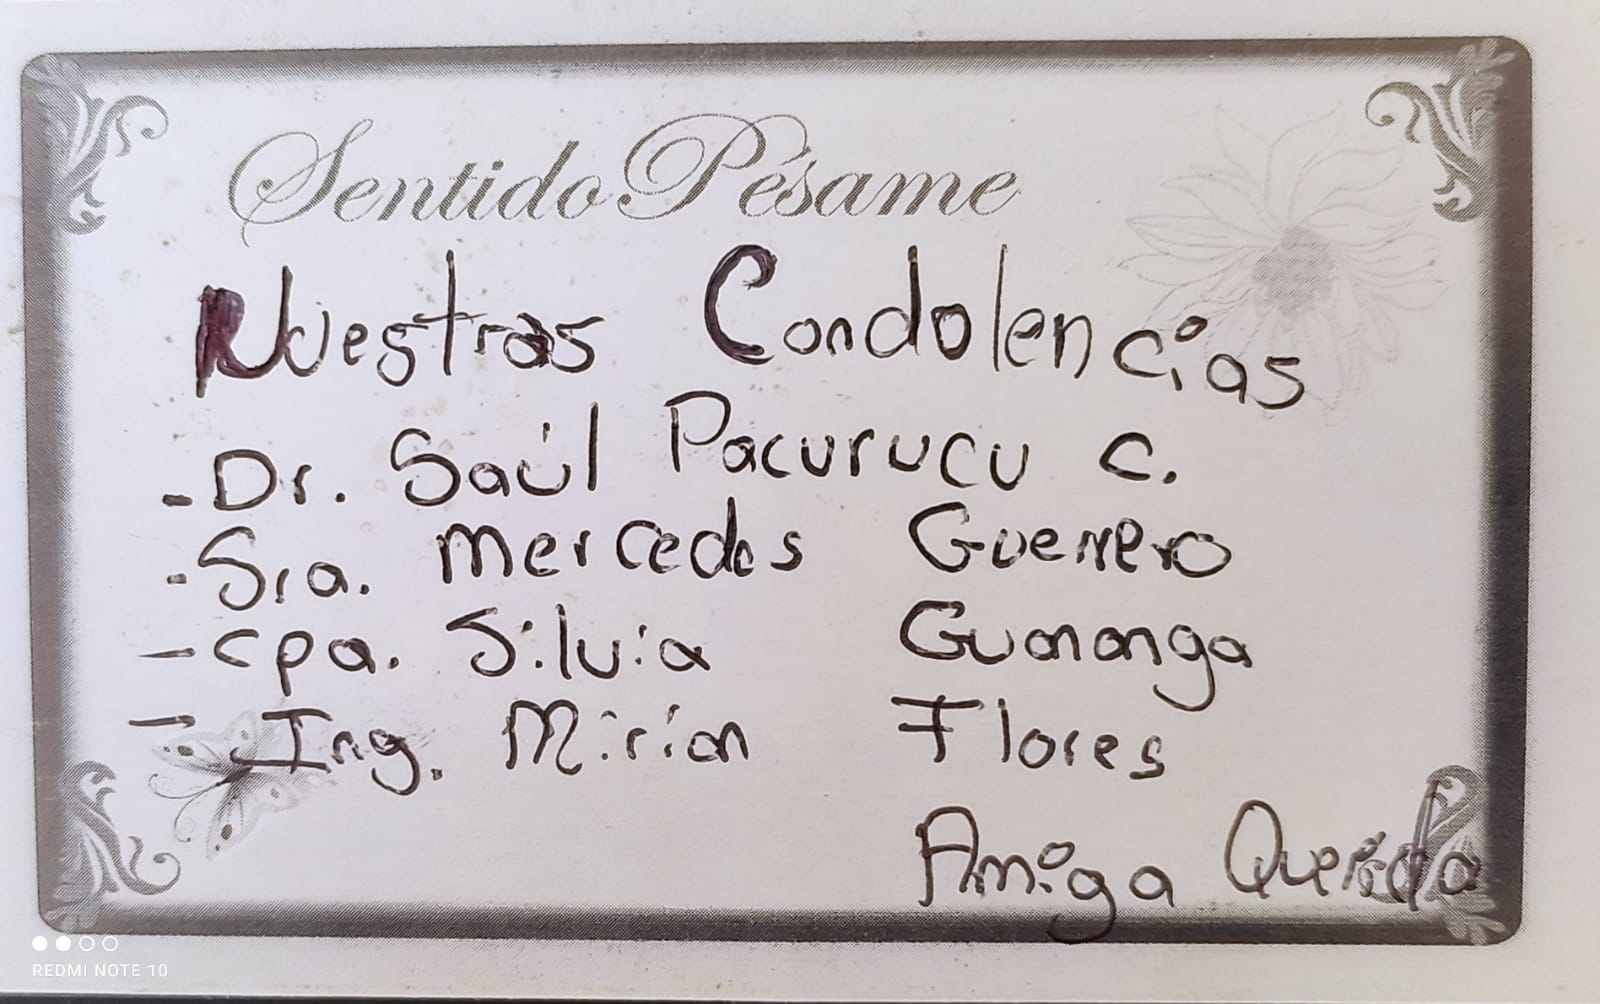 Sentido Pésame
Nuestras Condolencias
- Dr. Saúl Pacurucu C.
- Sra. Mercedes Guerrero
- Cpa. Silvia Guananga
- Ing. Mirian Flores
Amiga Querida
REDMI NOTE 10